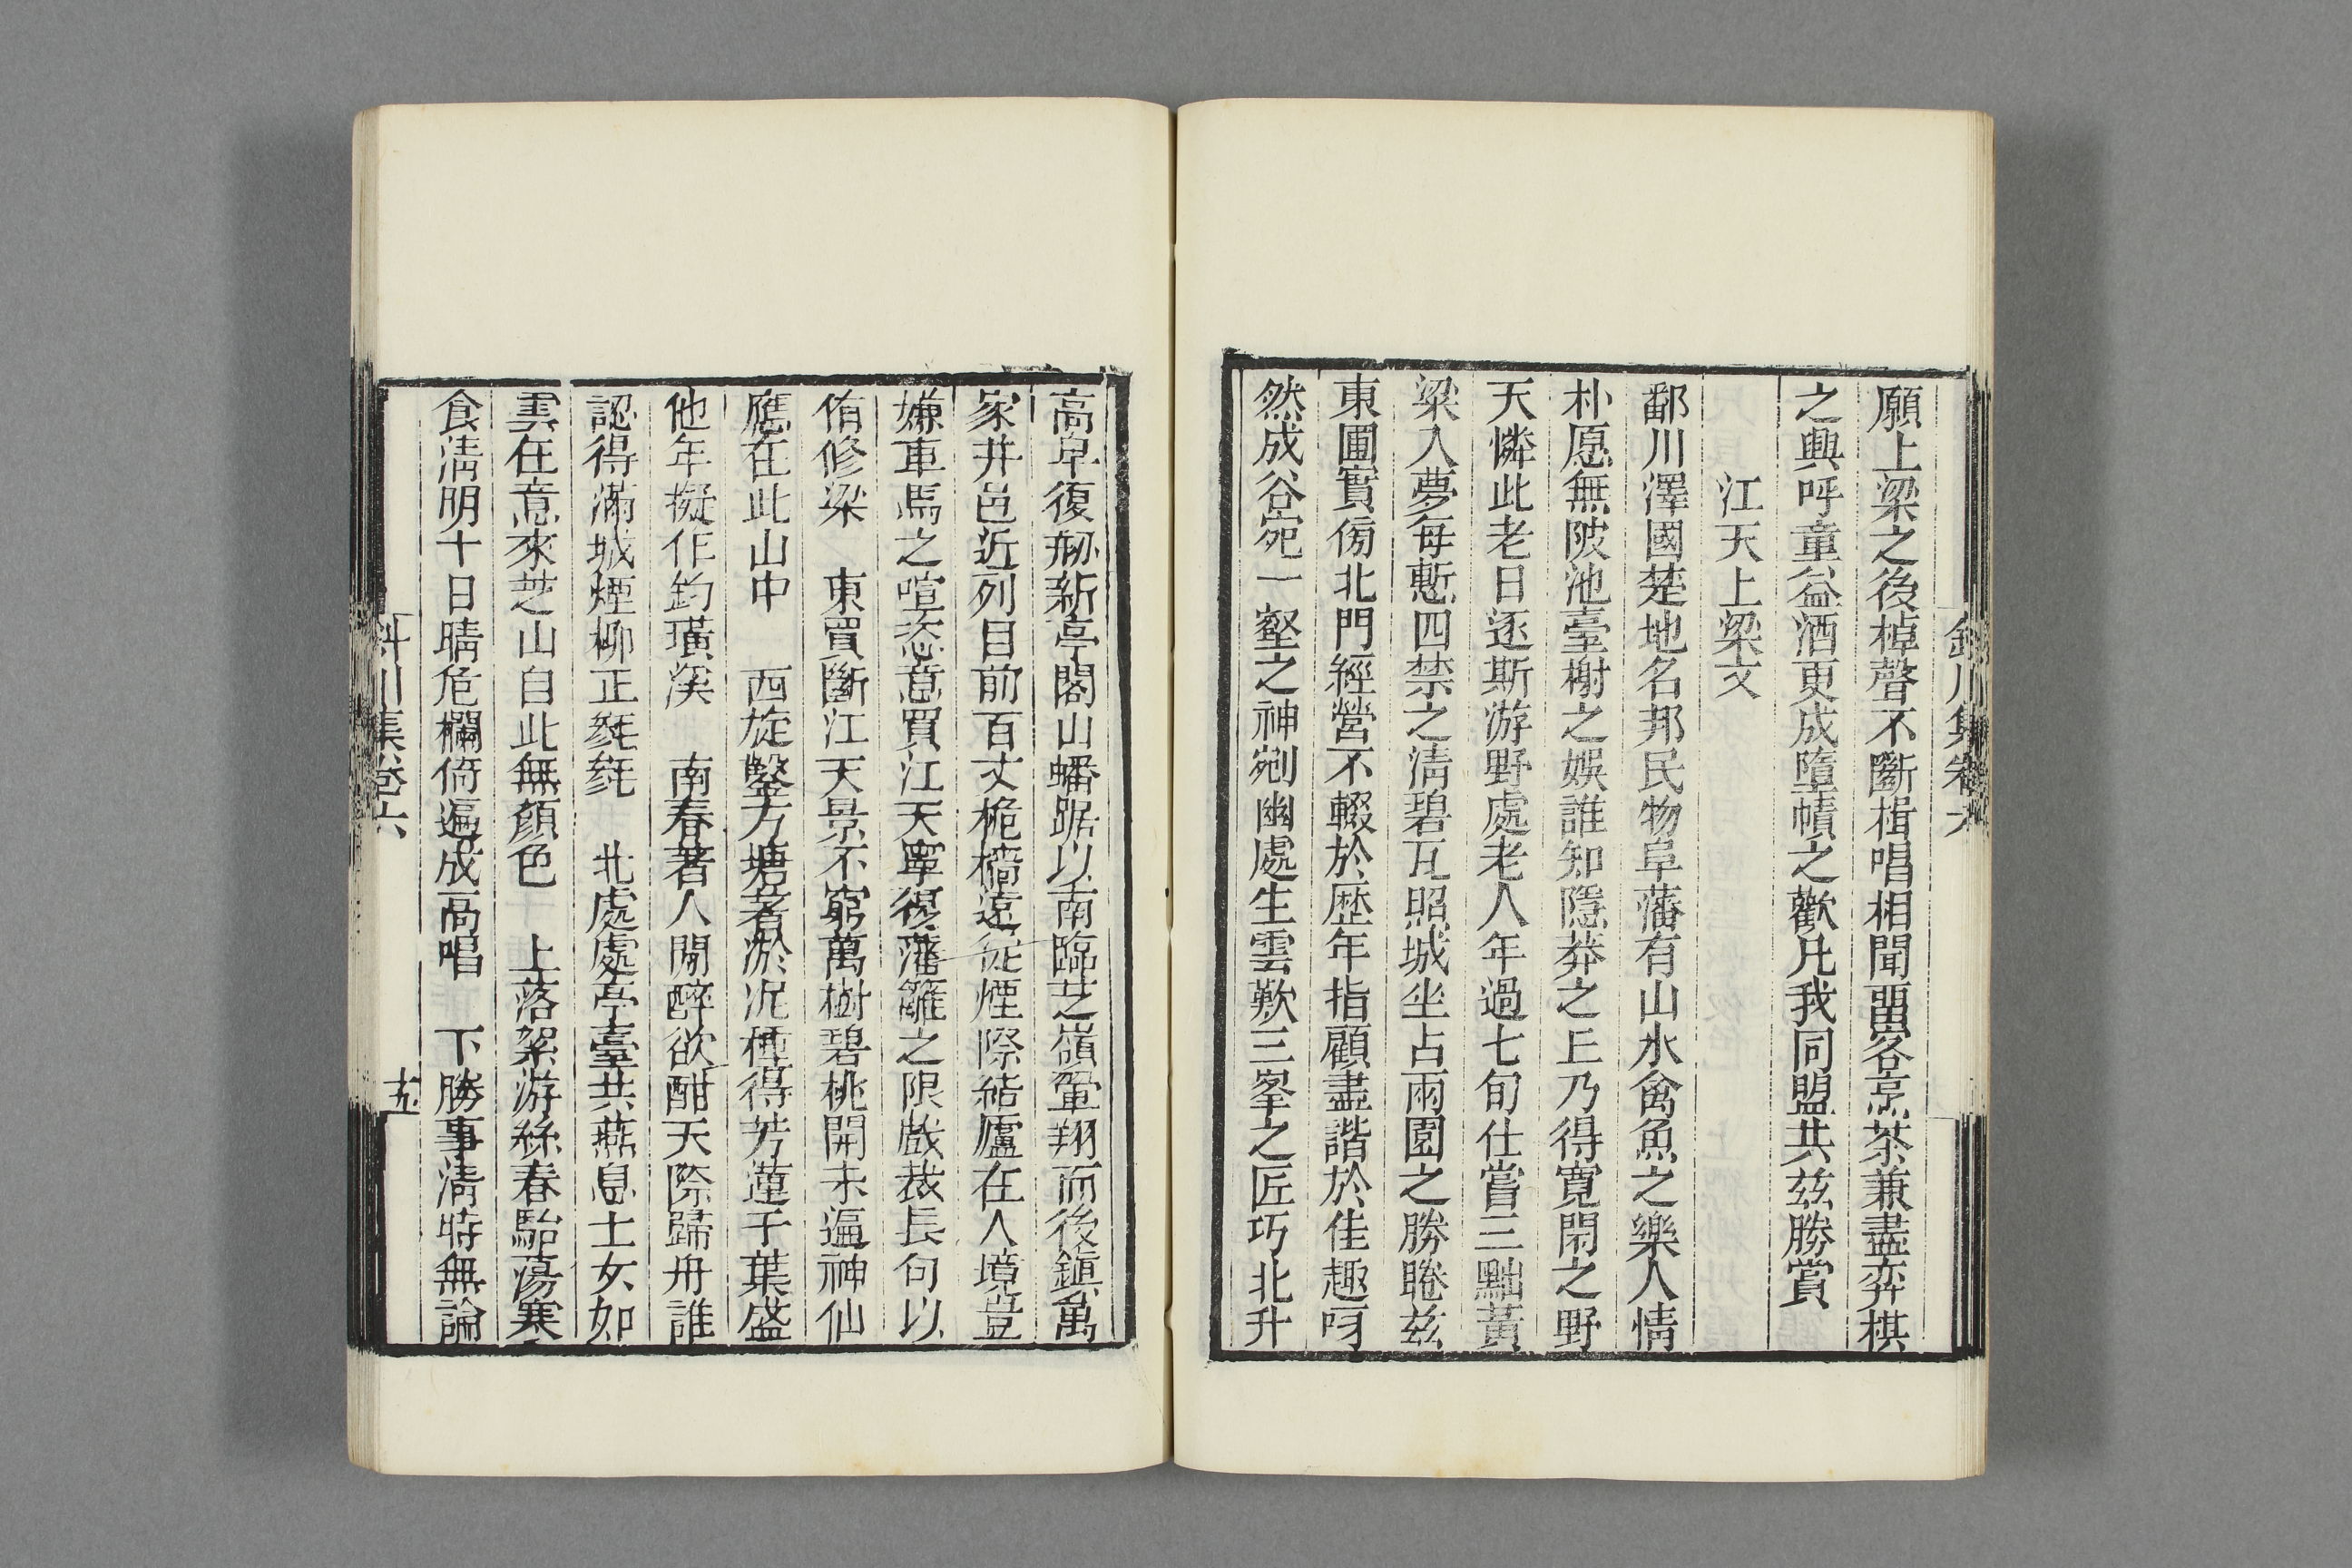 願上梁之後棹聲不斷楫唱相聞畱客烹茶兼盡弈棋
之興呼童益酒更成墮幘之歡凡我同盟共兹勝賞
江天上梁文
鄱川澤國楚地名邦民物阜藩有山水禽魚之樂人情
朴愿無陂池臺榭之娛誰知隱莽之丘乃得寛閑之野
天憐此老日逐斯游野處老人年過七旬仕嘗三黜黃
粱入夢每慙四禁之清碧瓦照城坐占兩園之勝睠兹
東圃實傍北門經營不輟於歴年指顧盡諧於佳趣呀
然成谷宛一壑之神剜幽處生雲歎三峯之匠巧北升
高阜復剏新亭閣山蟠踞以南臨芝嶺翬翔而後鎮萬
家井邑近列目前百丈桅檣遠從煙際結廬在人境豈
嫌車馬之喧恣意買江天寧得藩籬之限戲裁長句以
侑修梁　東買斷江天景不窮萬樹碧桃開未遍神仙
應在此山中　西旋鑿方塘著淤泥種得芳蓮千葉盛
他年擬作釣璜溪　南春著人閒醉欲酣天際歸舟誰
認得滿城煙柳正毿毿　北處處亭臺共燕息士女如
雲任意來芝山自此無顏色　上落絮游絲春駘蕩寒
食清明十日晴危欄倚遍成高唱　下勝事清時無論
川集卷六
十五